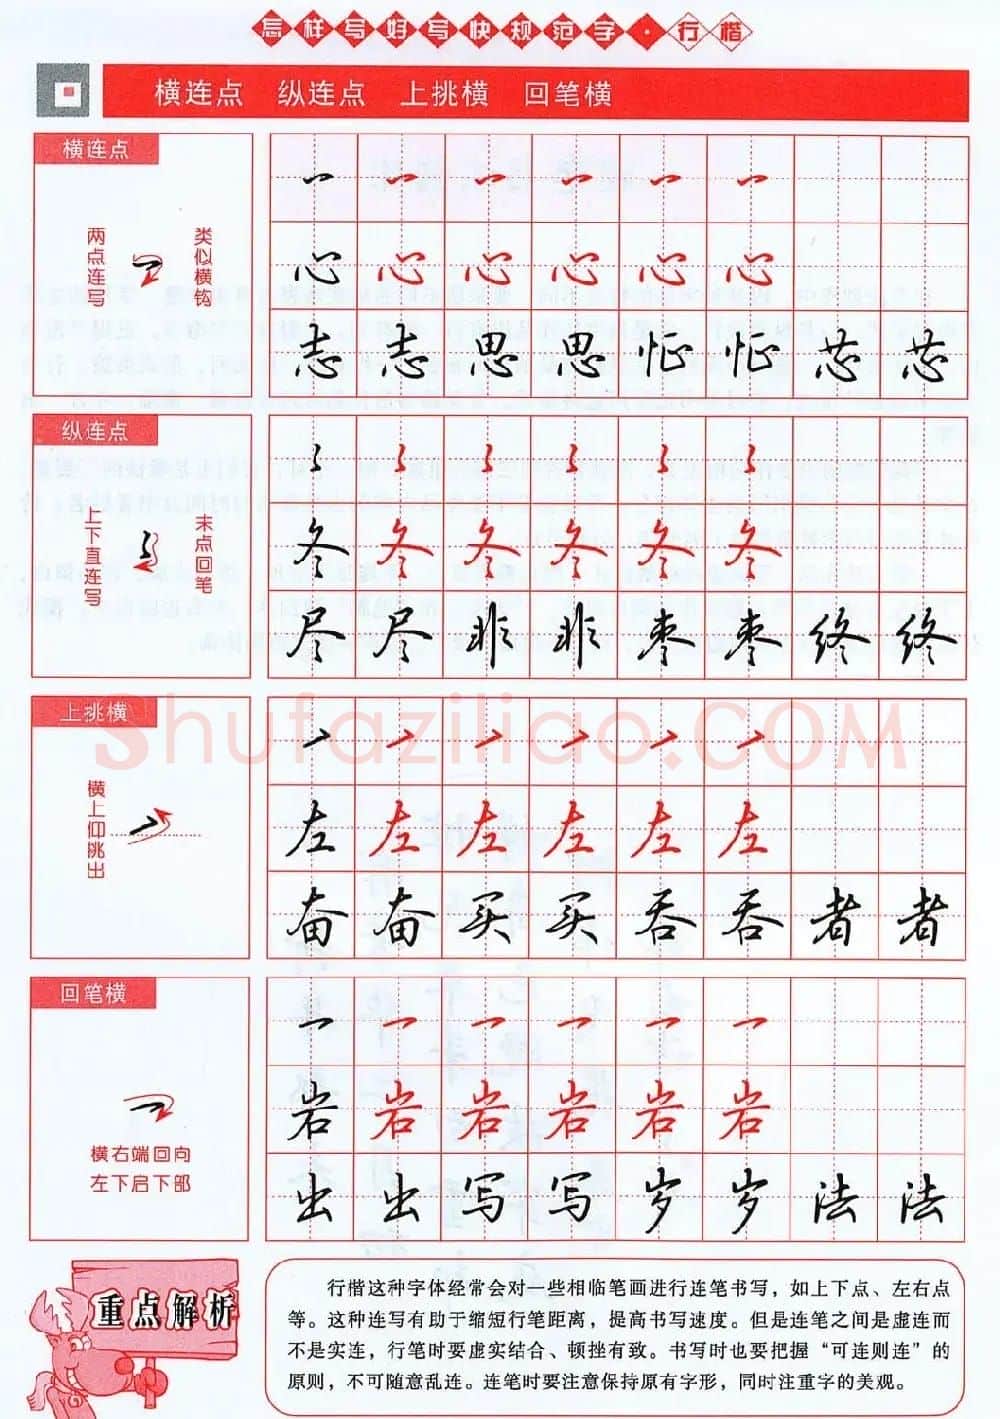 怎样写好写快规范字·行楷
横连点 纵连点 上挑横 回笔横
横连点
两点连写
类似横钩
心 心 心 心 心 心
志 志 思 思 忙 忙 芯 芯
纵连点
上下直连写
末点回笔
冬 冬 冬 冬 冬 冬
尽 尽 非 非 枣 枣 终 终
上挑横
横上仰挑出
左 左 左 左 左 左
奋 奋 买 买 吞 吞 者 者
回笔横
横右端回向
左下启下部
岩 岩 岩 岩 岩 岩
出 出 写 写 岁 岁 法 法
shufaziliao.COM
重点解析
行楷这种字体经常会对一些相临笔画进行连笔书写，如上下点、左右点
等。这种连写有助于缩短行笔距离，提高书写速度。但是连笔之间是虚连而
不是实连，行笔时要虚实结合、顿挫有致。书写时也要把握“可连则连”的
原则，不可随意乱连。连笔时要注意保持原有字形，同时注重字的美观。